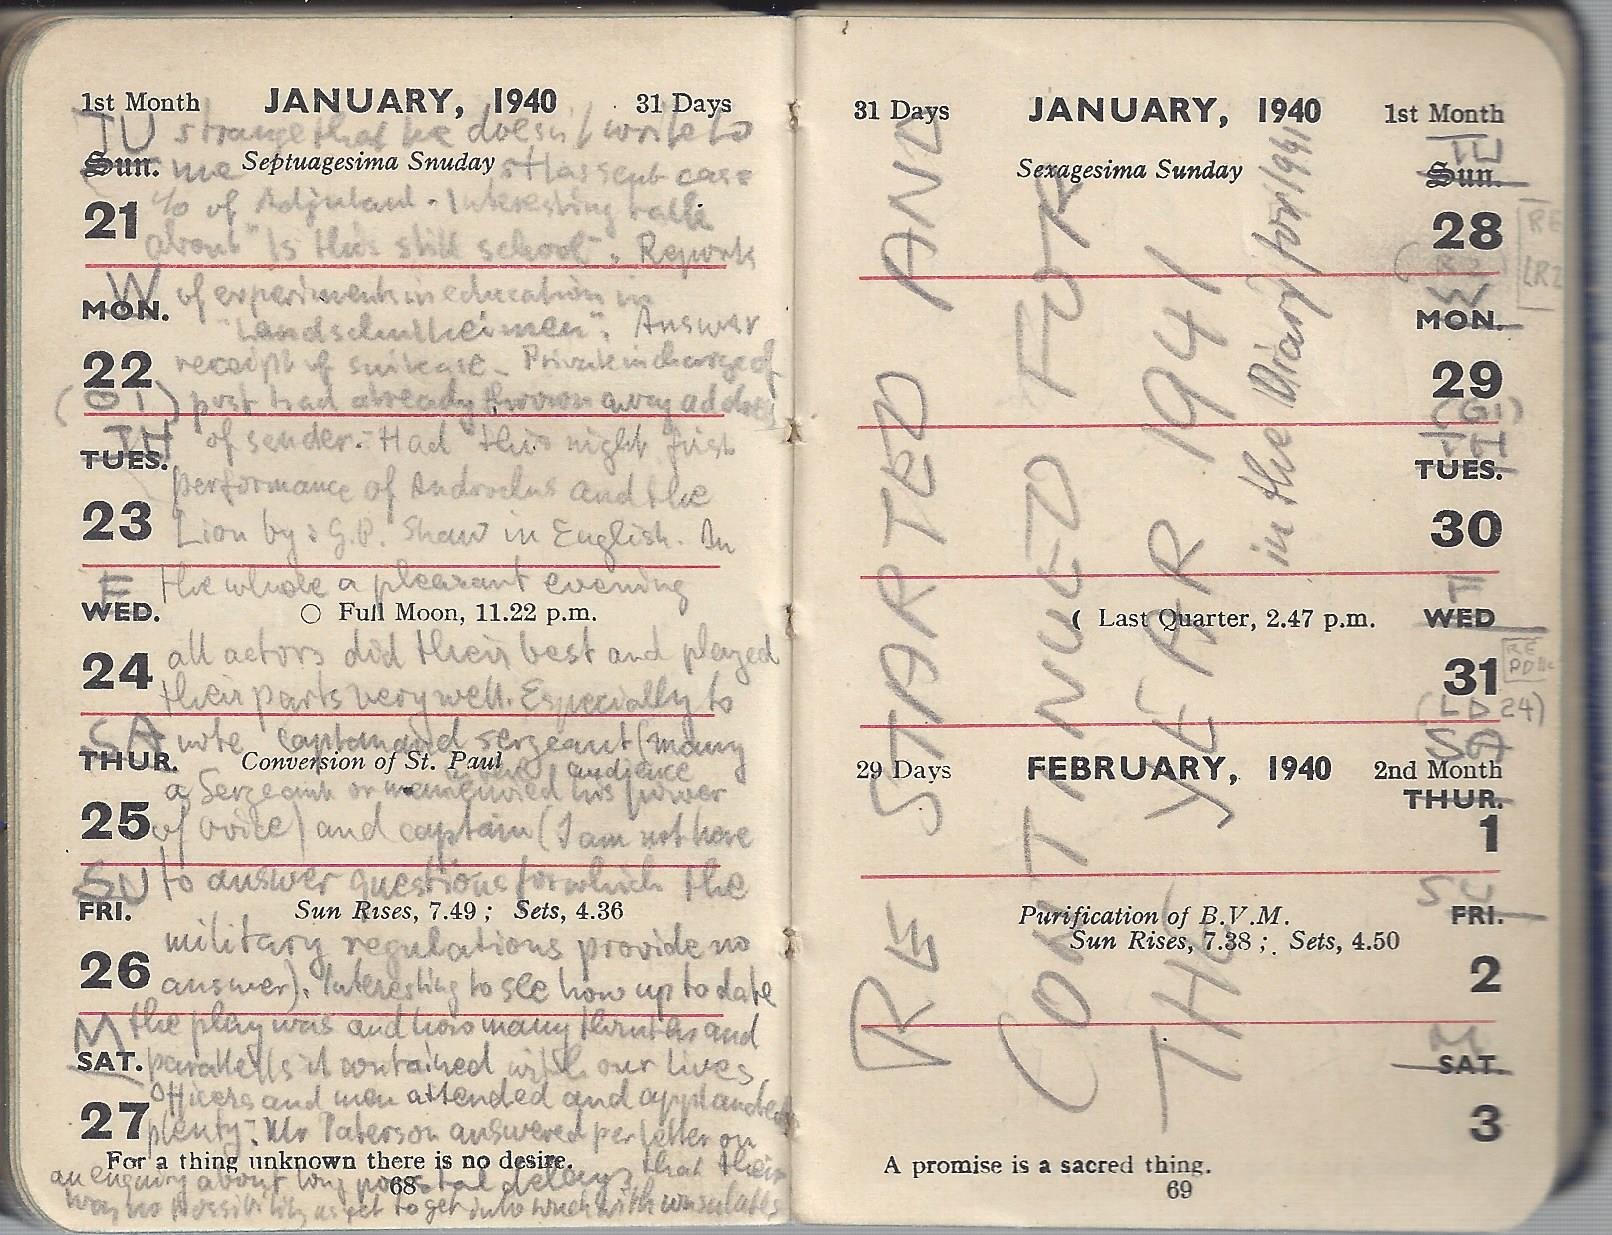 1st Month JANUARY, 1940 31 Days
TU strange that he doesn't write to
Sun. me Septuagesima Snuday Has sent case
c/o of Adjutant. Interesting talk
21 about "Is this still school". Reports
W of experiments in education in
MON. "Landschulheimen". Answer
22 receipt of suitcase - Private in charge of
post had already thrown away address
TH of sender. - Had this night first
TUES. performance of Androclus and the
23 Lion by: G.B. Shaw in English. In
F the whole a pleasant evening
WED. Full Moon, 11.22 p.m.
24 all actors did their best and played
their parts very well. Especially to
SA note captain and sergeant (many
THUR. Conversion of St. Paul
audience
a Sergeant or his power
25 of voice) and captain (I am not here
SU to answer questions for which the
FRI. Sun Rises, 7.49; Sets, 4.36
military regulations provide no
26 answer). Interesting to see how up to date
M the play was and how many truths and
SAT. parallels it contained with our lives
Officers and men attended and applauded
27 plenty. - Mr Paterson answered per letter on
For a thing unknown there is no desire.
an enquiry about long postal delays, that their
68
was no possibility as yet to get into touch with consulates
31 Days JANUARY, 1940 1st Month
TU
Sexagesima Sunday Sun.
28
RE
(R2)
LR2
W
MON.
29
(G1)
TH
TUES.
30
F
Last Quarter, 2.47 p.m. WED
31
RE
(LD 24)
SA
29 Days FEBRUARY, 1940 2nd Month
THUR.
1
SU
Purification of B.V.M. FRI.
Sun Rises, 7.38; Sets, 4.50
2
M
SAT.
3
A promise is a sacred thing.
69
RE STARTED AND
CONTINUED FOR
THE YEAR 1941
in the Diary for 1941